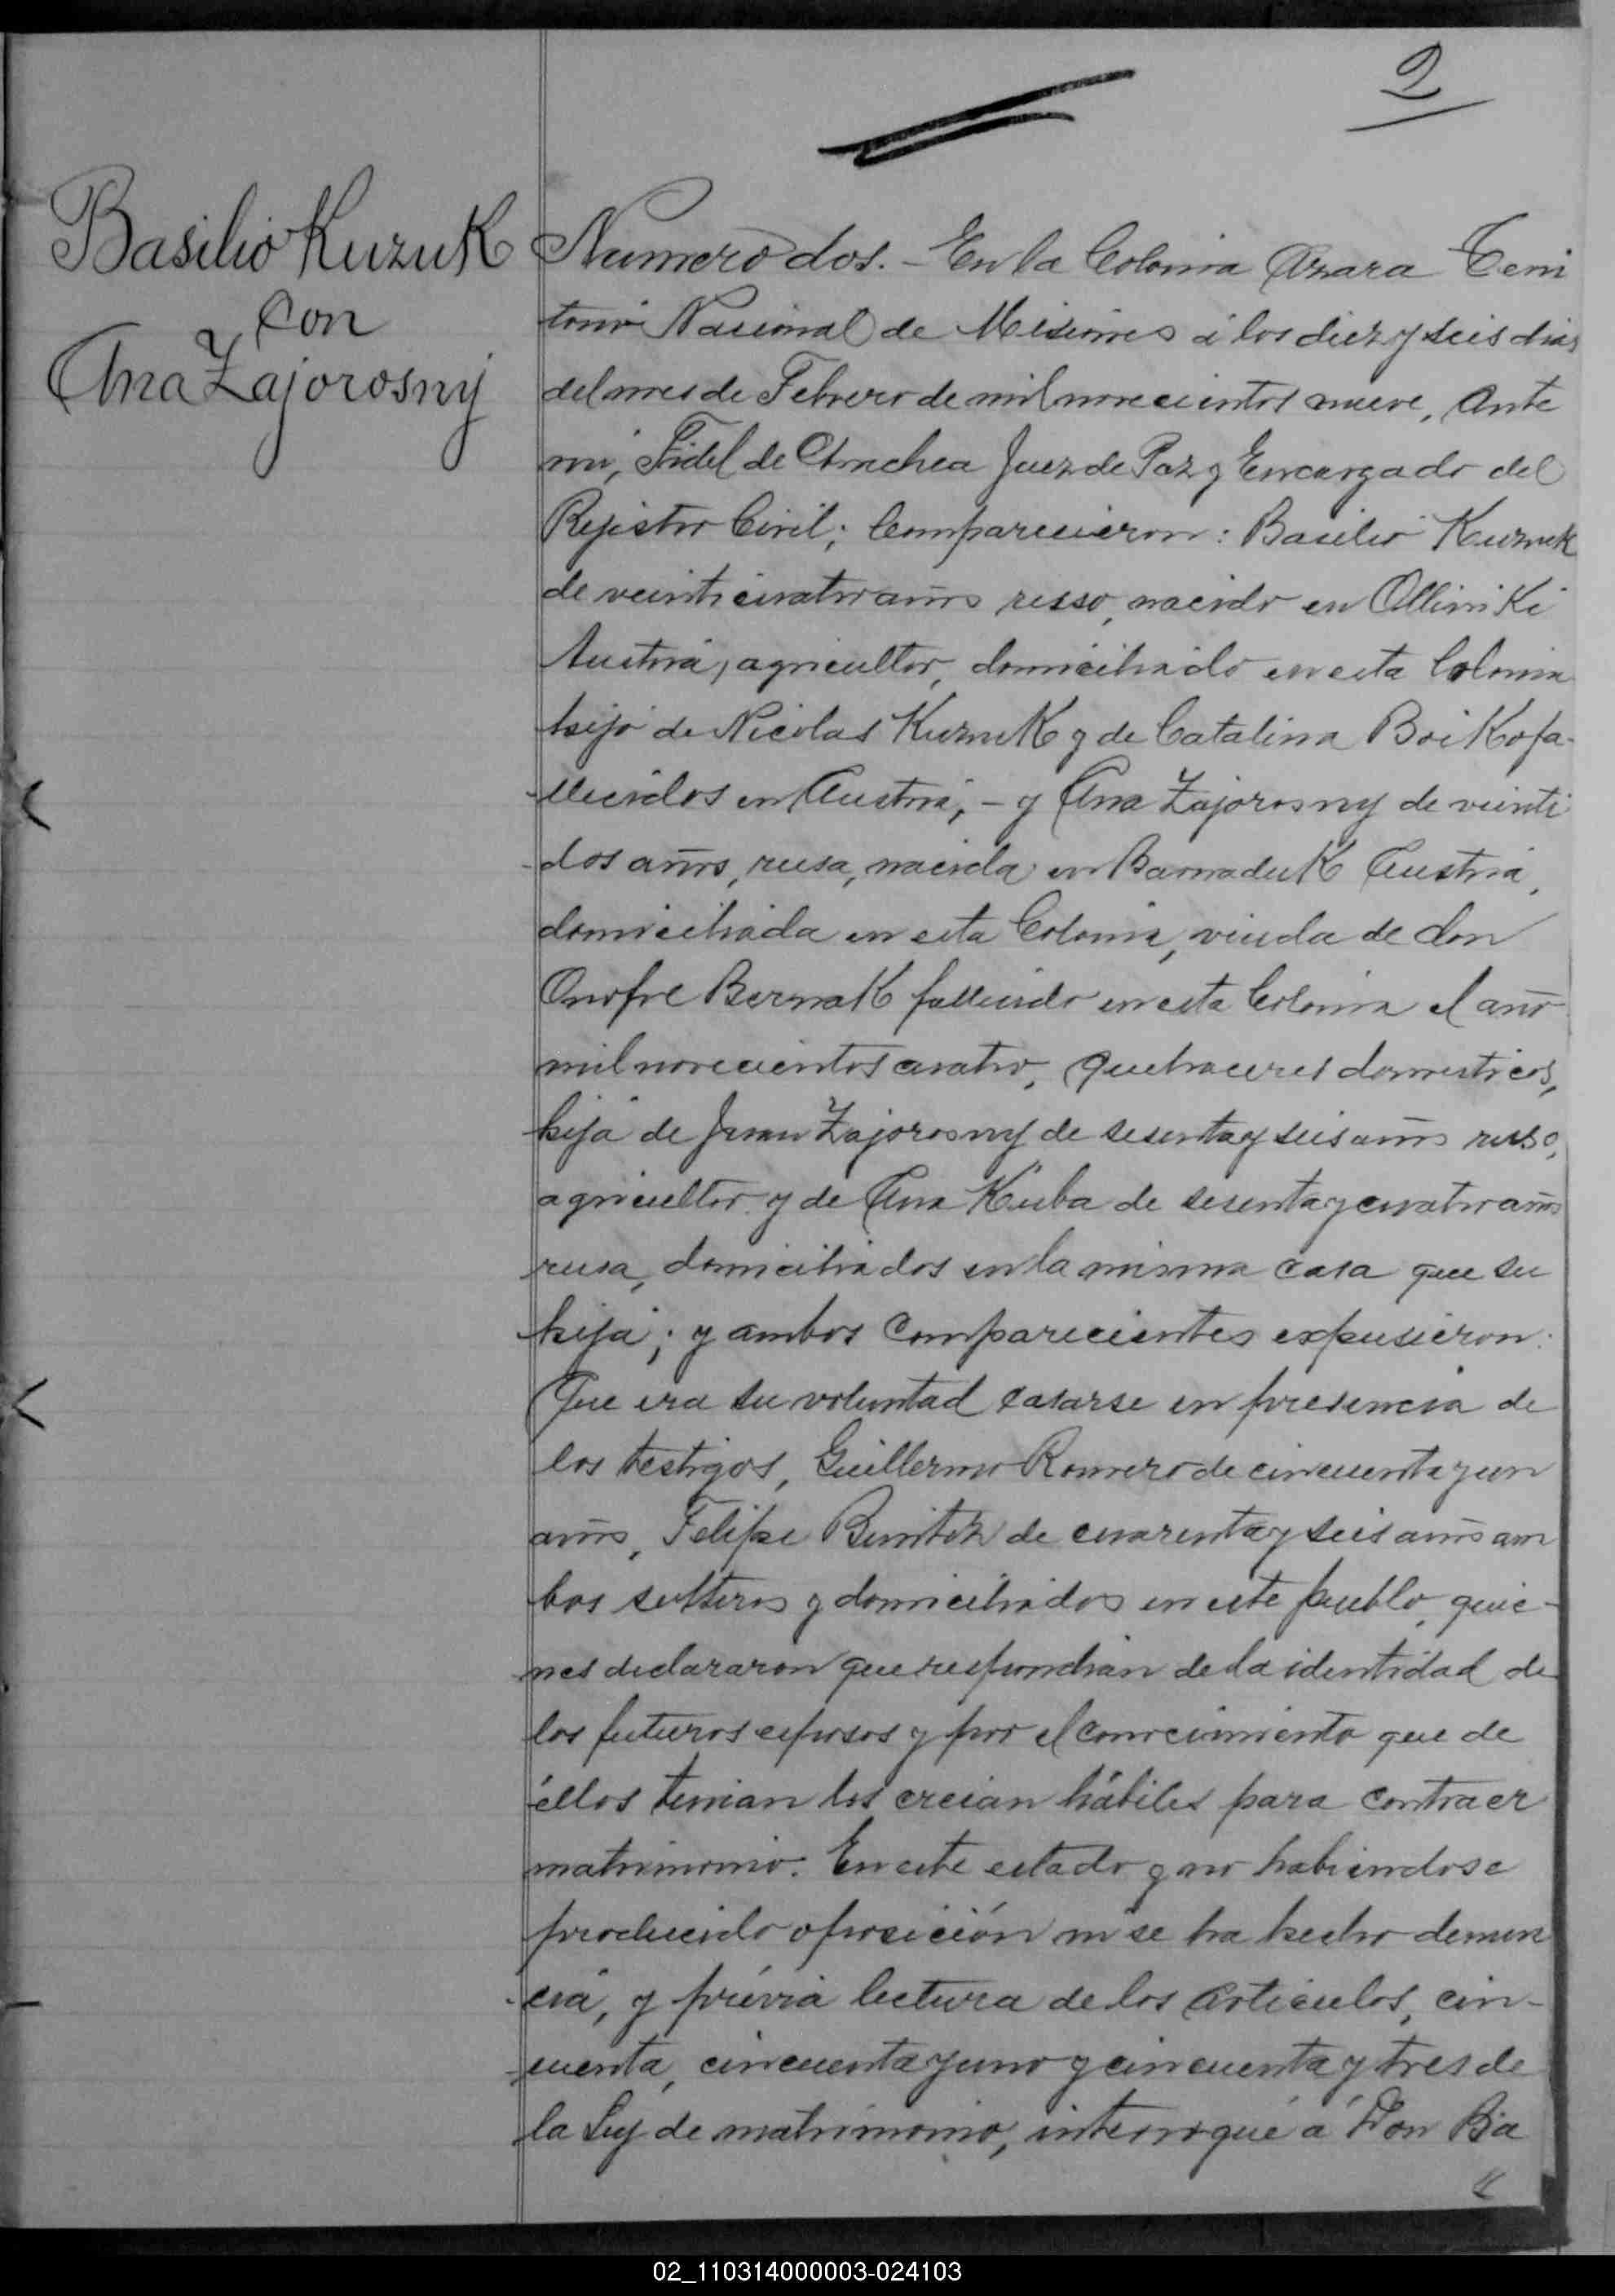 2
Basilio Kuzuk
con
Ana Zajorosny
Numero dos. - En la Colonia Azara Terri
torio Nacional de Misiones á los diez y seis dias
del mes de Febrero de mil novecientos nueve, Ante
mi, Fidel de Juez de Paz y Encargado del
Rejistro Civil; Comparecieron: Basilio Kuzuk
de veinticuatro años russo, nacido en
Austria, agricultor, domiciliado en esta Colonia
hijo de Nicolas Kuzuk y de Catalina Boiko fa-
llecidos en Austria, - y Ana Zajorosny de veinti
dos años, rusa, nacida en Austria,
domiciliada en esta Colonia, viuda de don
Onofre Bernak fallecido en esta Colonia el año
mil novecientos cuatro, quehaceres domesticos,
hija de Juan Zajorosny de sesenta y seis años ruso,
agricultor y de Ana Kuba de sesenta y cuatro años
rusa, domiciliados en la misma casa que su
hija; y ambos Comparecientes expusieron:
Que era su voluntad casarse en presencia de
los testigos, Guillermo Romero de cincuenta y un
años, Felipe Benitez de cuarenta y seis años am
bos solteros y domiciliados en este pueblo, quie-
nes declararon que respondian de la identidad de
los futuros esposos y por el conocimiento que de
éllos tenian los creian hábiles para contraer
matrimonio. En este estado y no habiendose
producido oposición ni se ha hecho denun
cia, y prévia lectura de los articulos, cin-
cuenta, cincuenta y uno y cincuenta y tres de
la Ley de matrimonio, interrogué a Don Ba
02_110314000003-024103